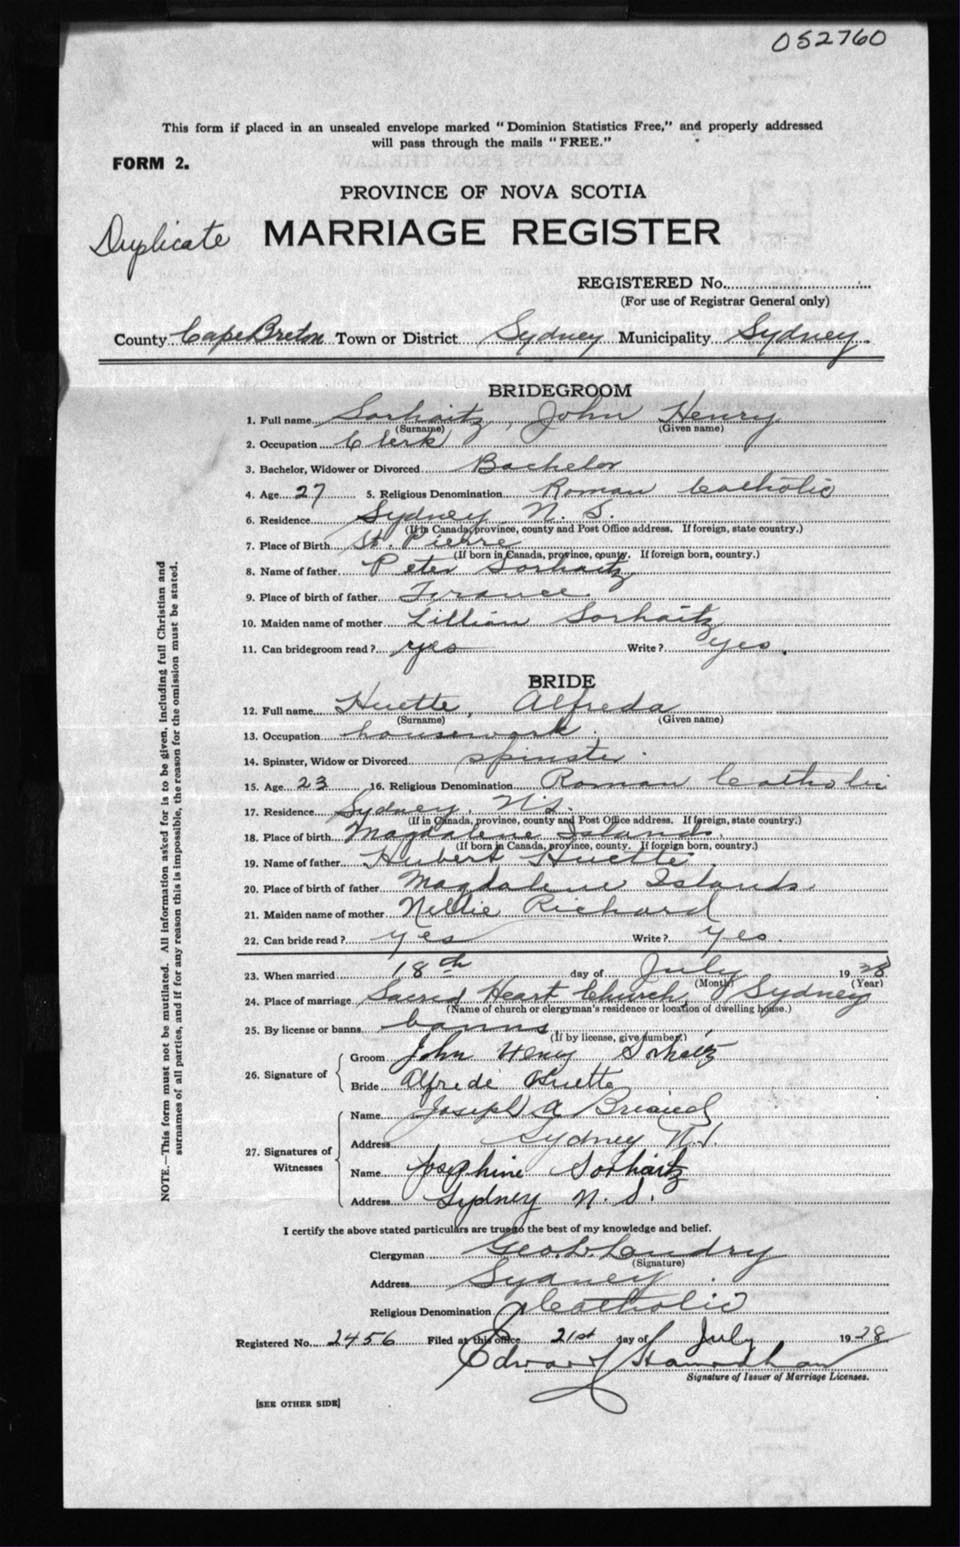 052760
This form if placed in an unsealed envelope marked "Dominion Statistics Free," and properly addressed
will pass through the mails "FREE."
FORM 2.
PROVINCE OF NOVA SCOTIA
Duplicate MARRIAGE REGISTER
REGISTERED No.
(For use of Registrar General only)
County Cape Breton Town or District Sydney Municipality Sydney
BRIDEGROOM
1. Full name Sorhaitz, John Henry
(Surname) (Given name)
2. Occupation Clerk
3. Bachelor, Widower or Divorced Bachelor
4. Age 27 5. Religious Denomination Roman Catholic
6. Residence Sydney N. S.
(If in Canada, province, county and Post Office address. If foreign, state country.)
7. Place of Birth St. Pierre
(If born in Canada, province, county. If foreign born, country.)
8. Name of father Peter Sorhaitz
9. Place of birth of father France
10. Maiden name of mother Lillian Sorhaitz
11. Can bridegroom read? yes Write? yes.
BRIDE
12. Full name Huette, Alfreda
(Surname) (Given name)
13. Occupation housework.
14. Spinster, Widow or Divorced spinster
15. Age 23 16. Religious Denomination Roman Catholic
17. Residence Sydney, N.S.
(If in Canada, province, county and Post Office address. If foreign, state country.)
18. Place of birth Magdalene Islands.
(If born in Canada, province, county. If foreign born, country.)
19. Name of father Hubert Huette
20. Place of birth of father Magdalene Islands.
21. Maiden name of mother Nellie Richard
22. Can bride read? yes Write? yes.
23. When married 18th day of July 1928
(Month) (Year)
24. Place of marriage Sacred Heart Church, Sydney
(Name of church or clergyman's residence or location of dwelling house.)
25. By license or banns banns
(If by license, give number.)
26. Signature of
Groom John Henry Sorhaitz
Bride Alfreda Huette
27. Signatures of Witnesses
Name Joseph A Briand
Address Sydney N.S.
Name Josephine Sorhaitz
Address Sydney N. S.
I certify the above stated particulars are true to the best of my knowledge and belief.
Clergyman Geo. L. Landry
(Signature)
Address Sydney
Religious Denomination Catholic
Registered No. 2456 Filed at this office 21st day of July 1928
Edward
Signature of Issuer of Marriage Licenses.
[SEE OTHER SIDE]
NOTE.—This form must not be mutilated. All information asked for is to be given, including full Christian and
surnames of all parties, and if for any reason this is impossible, the reason for the omission must be stated.